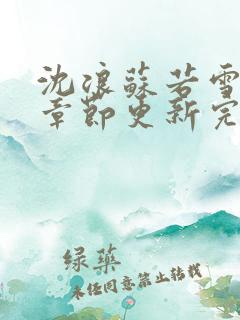 沈浪蘇若雪
章節更新完
綠藥
未任同意禁止转载